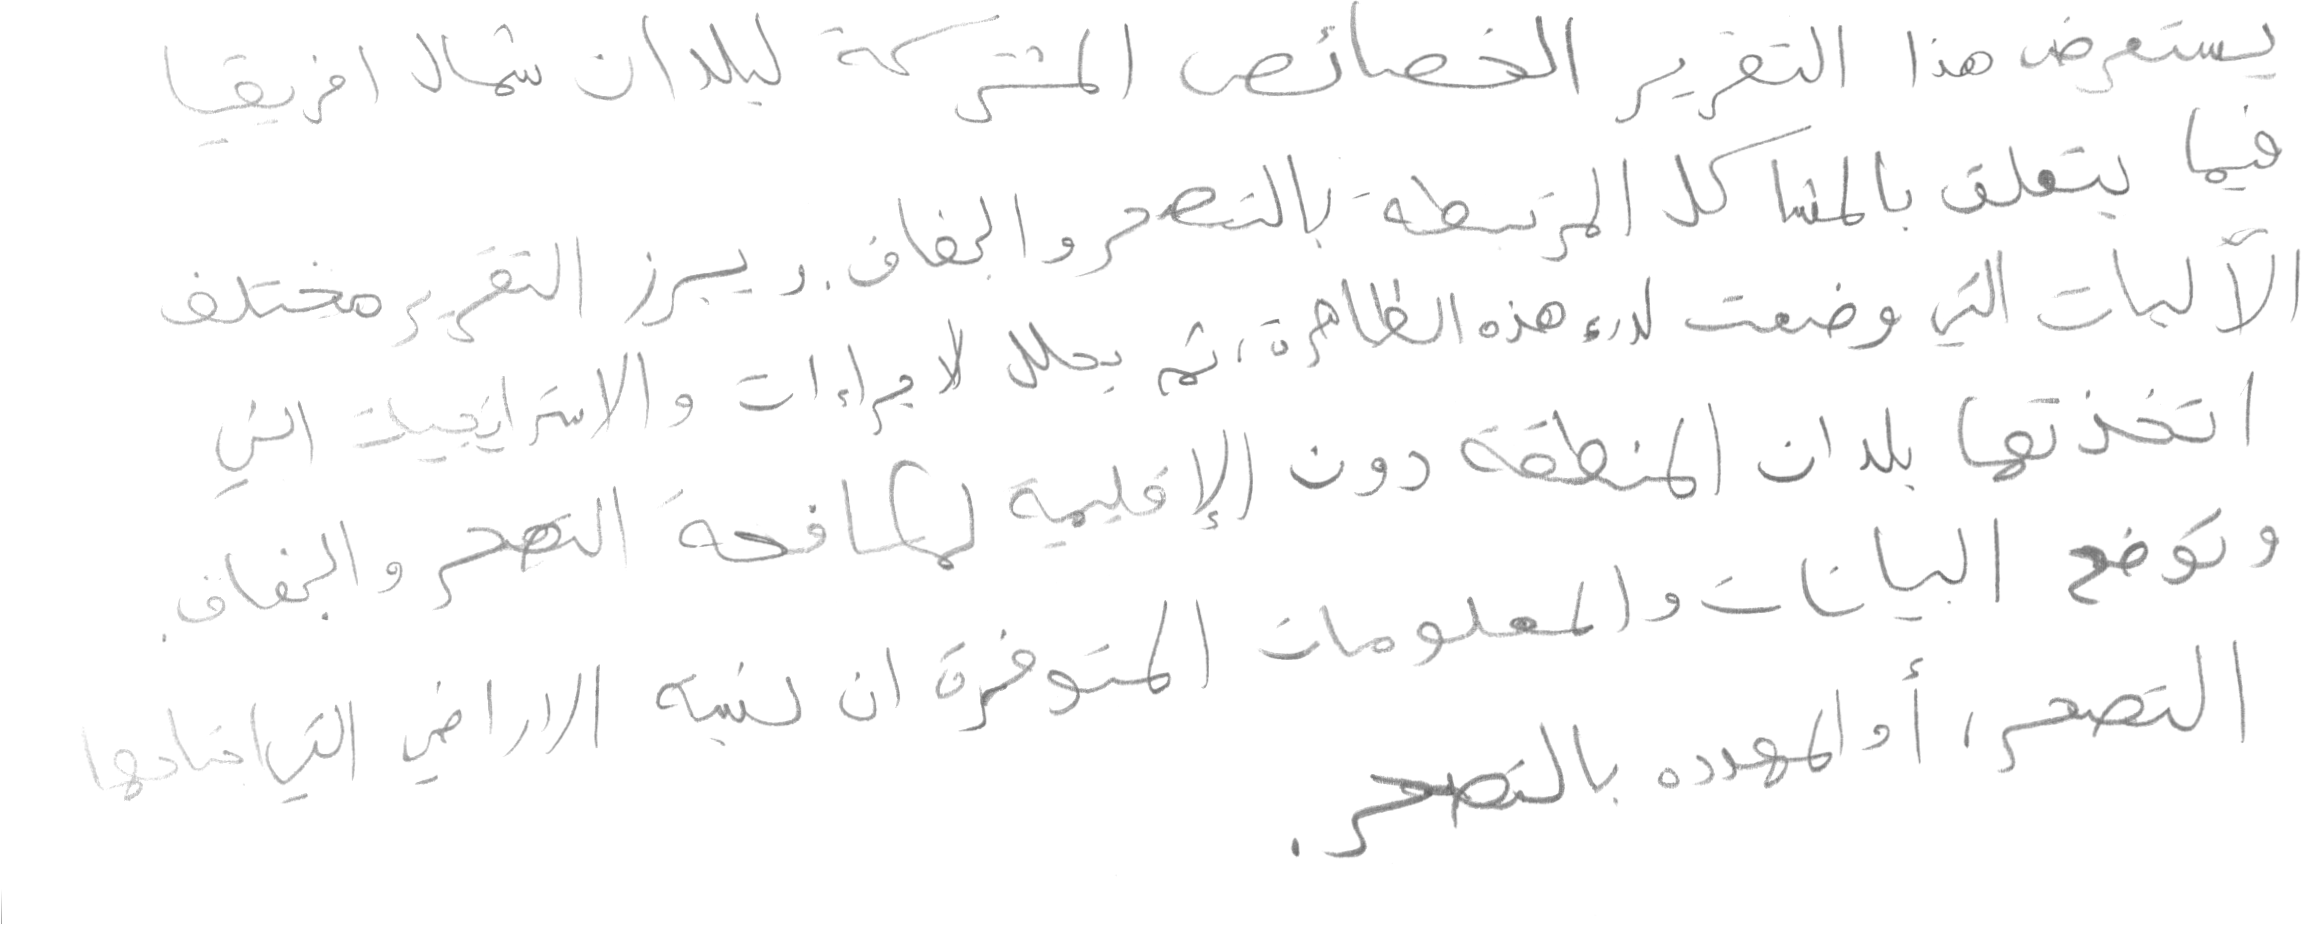 يستعرض هذا التقرير الخصائص المشتركة لبلدان شمال افريقيا
فيما يتعلق بالمشاكل المرتبطة بالتصحر والجفاف. ويبرز التقرير مختلف
الآليات التي وضعت لدرء هذه الظاهرة، ثم يحلل لاجراءات والاستراتيجيات التي
اتخذتها بلدان المنطقة دون الإقليمية لمكافحة التصحر والجفاف.
وتوضح البيانات والمعلومات المتوفرة ان نسبه الاراضي التي اصابها
التصحر، أو المهدده بالتصحر.